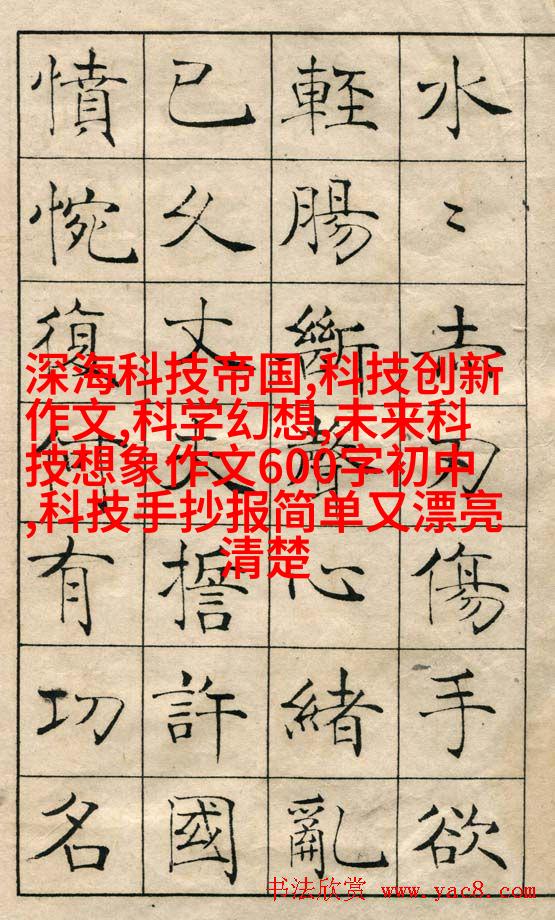 水〻赤刃傷手欲
輕腸斷聲心緒亂
已久丈夫誓許國
憤惋復何有功名
深海科技帝国,科技创新
作文,科学幻想,未来科
技想象作文600字初中
,科技手抄报简单又漂亮
清楚
书法欣赏 www.yac8.com